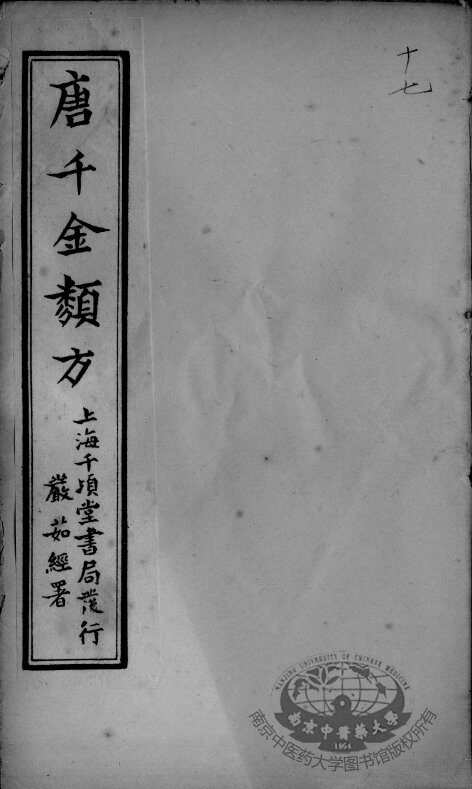 十七
唐千金類方
上海千頃堂書局發行
嚴茹經署
NANJING UNIVERSITY OF CHINESE MEDICINE
南京中醫藥大學
1954
南京中医药大学图书馆版权所有